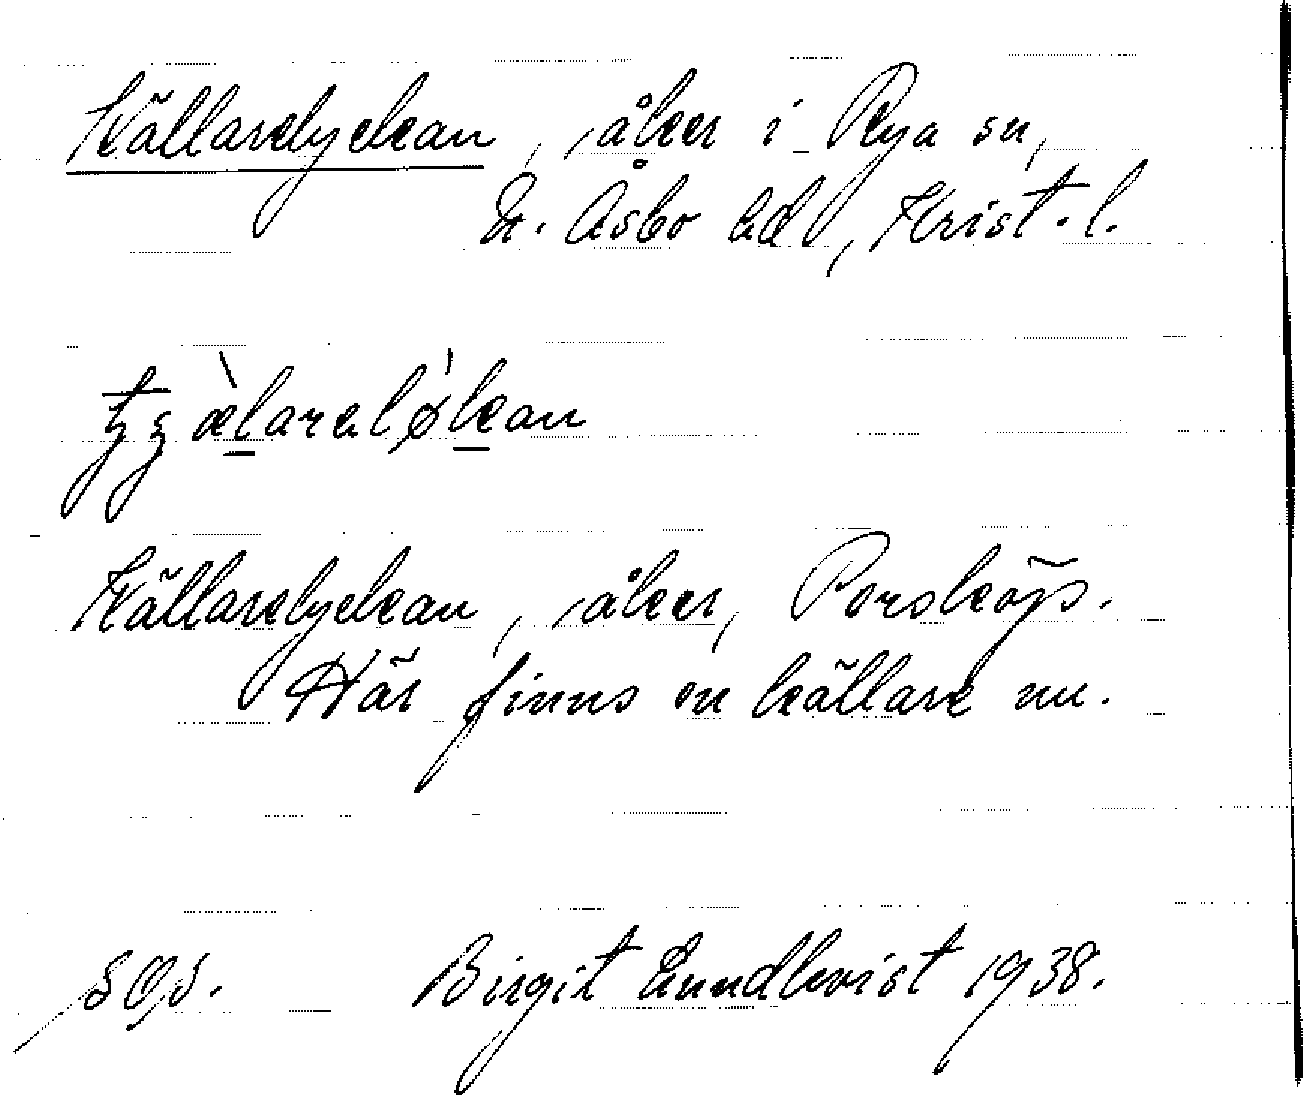 Källarelyckan, åker i Rya sn,
N. Åsbo hd, Krist. l.
Källarelyckan, åker, Porsköps.
Här finns en källare nu.
SOS. Birgit Lundkvist 1938.